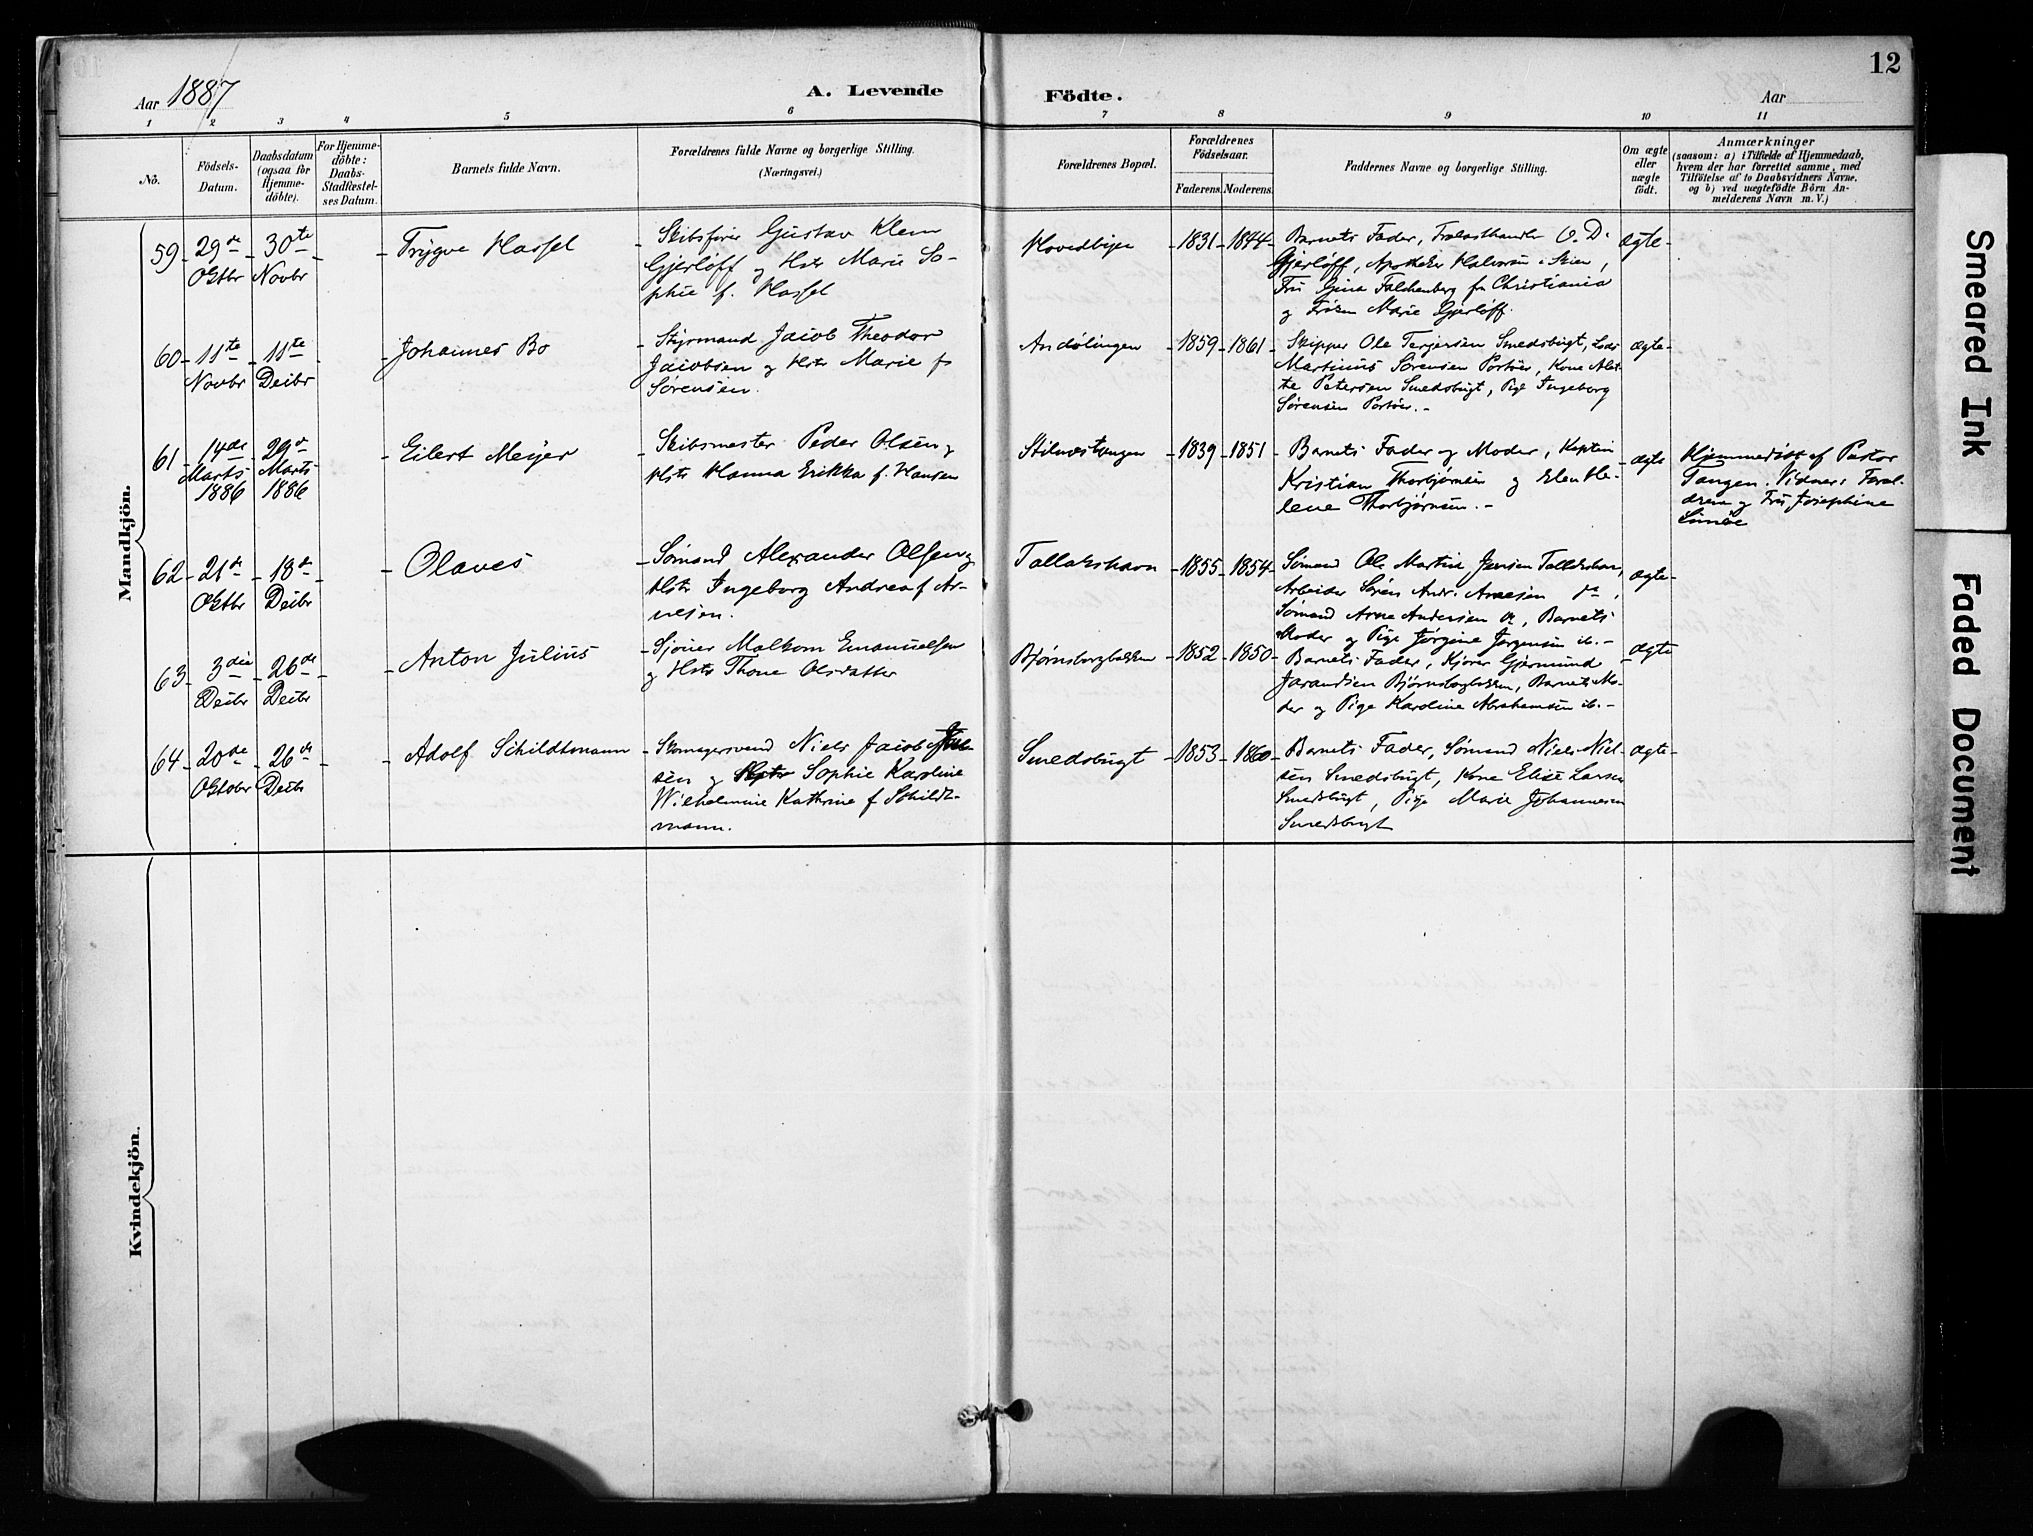 12
Aar 1887
A. Levende
Födte.
Aar
1 2 3 4 5 6 7 8 9 10 11
No.
Födsels-
Datum.
Daabsdatum
(ogsaa for
Hjemme-
döbte).
For Hjemme-
döbte:
Daabs-
Stadfæstel-
ses Datum.
Barnets fulde Navn.
Forældrenes fulde Navne og borgerlige Stilling.
(Næringsvei.)
Forældrenes Bopæl.
Forældrenes
Födselsaar.
Faderens. Moderens.
Faddernes Navne og borgerlige Stilling.
Om ægte
eller
uægte
födt.
Anmærkninger
(saasom: a) i Tilfælde af Hjemmedaab,
hvem der har forrettet samme, med
Tilföielse af to Daabsvidners Navne,
og b) ved uægtefödte Börn An-
melderens Navn m. V.)
Mandkjön.
59 29de Oktbr
30te Novbr
Trygve Hassel
Skibsfører Gustav Klem
Gjerløff og Hstr Marie So-
phie f. Hassel
Hovedbyen
1831 1844
Barnets Fader, Trælasthandler O. D.
Gjerløff, Apotheker Halvorsen Skien,
Fru Gina Falchenberg fr Christiania
og Frøken Marie Gjerløff.
ægte
60 11te Novbr
11te Decbr
Johannes Bo
Styrmand Jacob Theodor
Jacobsen og Hstr Marie f
Sørensen.
Andølingen
1859 1861
Skipper Ole Terjersen Smedsbugt, Lods
Martinius Sørensen Portør, Kone
Petersen Smedsbugt, Pige Ingeborg
Sørensen Portør.
ægte
61 14de Marts 1886
29de Marts 1886
Eilert Meyer
Skibsmester Peder Olsen og
Hstr Hanna Erikka f. Hansen
Stilnestangen
1839 1851
Barnets Fader og Moder, Kaptein
Kristian Thorbjørnsen og Elen He-
lene Thorbjørnsen.
ægte
Hjemmedøbt af Pastor
Tangen. Vidner: Foræl-
drene og Fru Josephine
62 21de Oktbr
18de Decbr
Olaves
Sømand Alexander Olsen og
Hstr Ingeborg Andrea f Ar-
nesen.
Tallakshavn
1855 1854
Sømand Ole Martin Jensen Tallakshavn,
Arbeider Søren Andr. Arnesen do,
Sømand Arne Andersen do, Barnets
Moder og Pige Jørgine Jørgensen ib.
ægte
63 3die Decbr
26de Decbr
Anton Julius
Sjøuer Malkom Emanuelsen
og Hstr Thone Olsdatter
Bjørnsborgbakken
1852 1850
Barnets Fader, Kjører Gjermund
Jarandsen Bjørnsborgbakken, Barnets Mo-
der og Pige Karoline Abrahamsen ib.
ægte
64 20de Oktobr
26de Decbr
Adolf Schildtmann
Skomagersvend Niels Jacob
sen og Sophie Karoline
Wilhelmine Kathrine f Schildt-
mann.
Smedsbugt
1853 1860
Barnets Fader, Sømand Niels Niel-
sen Smedsbugt, Kone Elise Larsen
Smedsbugt, Pige Marie Johannesen
Smedsbugt
ægte
Kvindekjön.
Smeared Ink
Faded Document